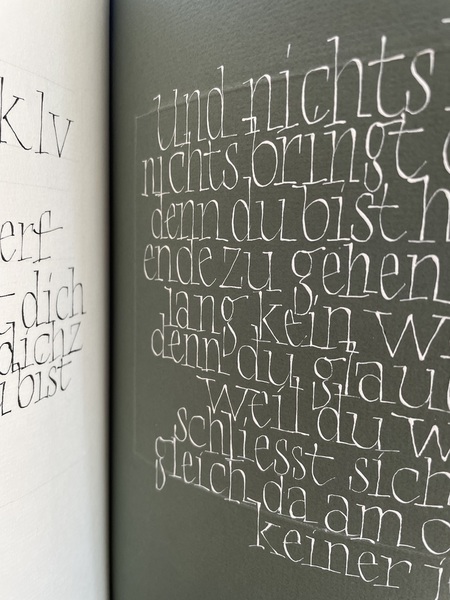 klv
erf
dich
dichz
bist
und nichts
nichts bringt
denn du bist
ende zu gehen
lang kein
denn du glau
weil du
schliesst sich
gleich da am
keiner